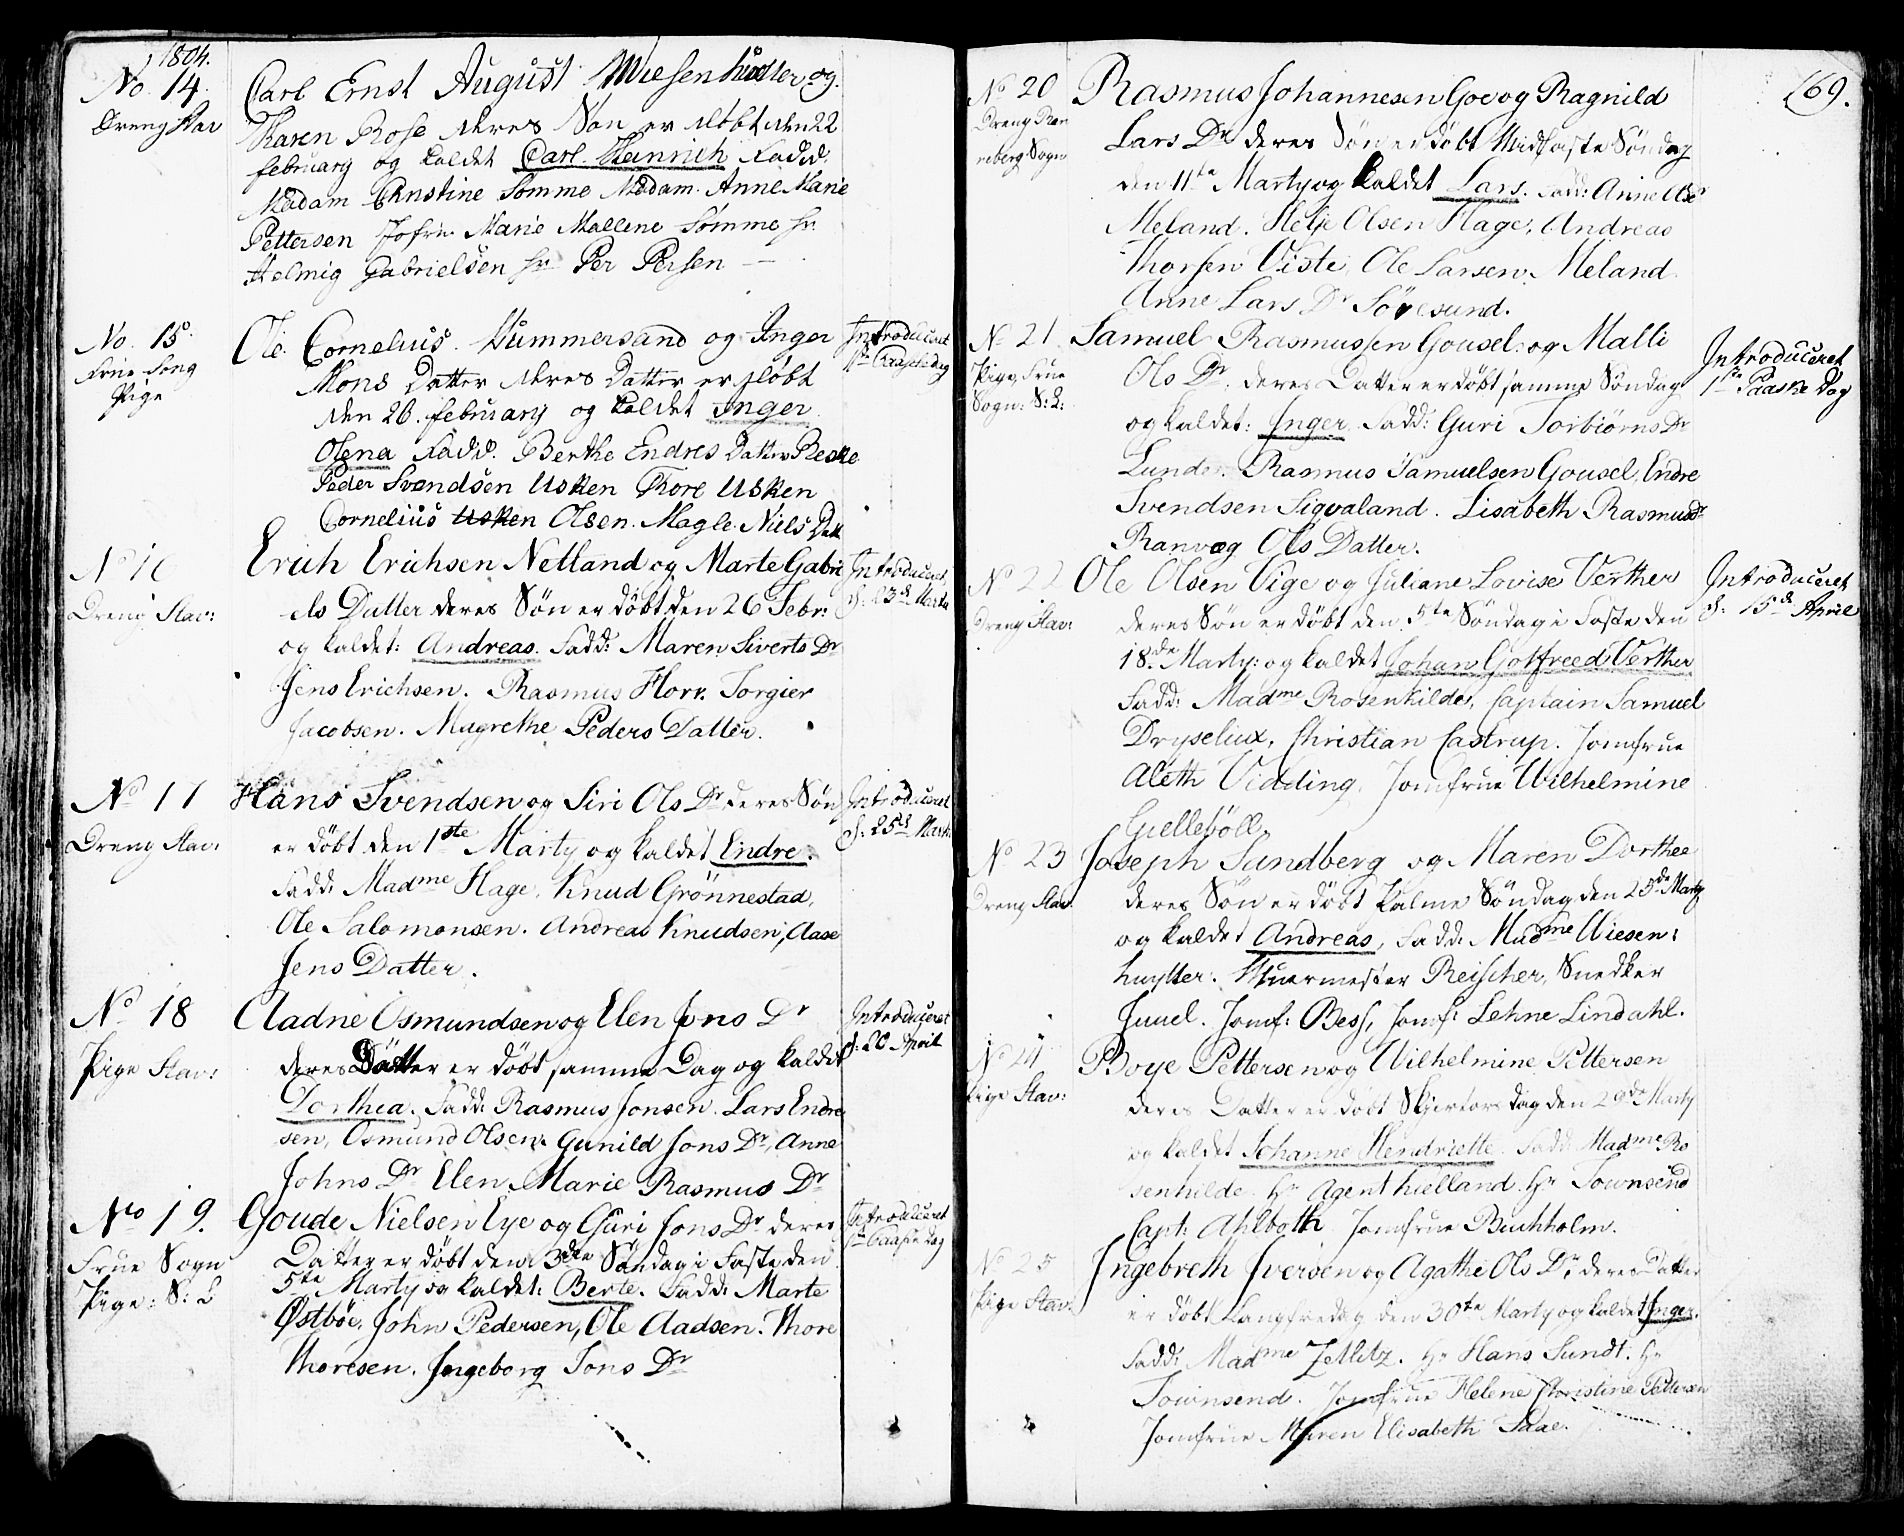 1804.
No. 14.
Dreng Stav
Carl Ernst August Wiesenhütter og
Karen Rose deres Søn er døbt den 22
february og kaldet Carl Heinrich Fadd.
Madam Christine Sømme Madam Anne Marie
Pettersen Jofru Marie Mallene Sømme hr.
Helmig Gabrielsen hr. Per Persen —
No. 15.
Frue Song
Pige
Ole Cornelius Hummersand og Inger
Mons Datter deres Datter er døbt
den 26. february og kaldet Inger
Olena Fadd. Berthe Endres Datter Reske
Peder Svendsen Usken Thore Usken
Cornelius Usken Olsen. Magle Niels Datt
Introduceret
1ste Paaske dag
No 16
Dreng Stav:
Erich Erichsen Netland og Marte Gabri
els Datter deres Søn er døbt den 26 Febr:
og kaldet: Andreas. Fadd: Maren Siverts Dr
Jens Erichsen. Rasmus Horr. Torgier
Jacobsen. Magrethe Peders Datter.
Introduceret
d: 23d Marti
No 17
Dreng Stav:
Hans Svendsen og Siri Ols Dr deres Søn
er døbt den 1ste Marty og kaldet Endre.
Fadd: Madme Hage, Knud Grönnestad,
Ole Salomonsen. Andreas Knudsen, Aase
Jens Datter.
Introduceret
d: 25d Marti
No 18
Pige Stav:
Aadne Osmundsen og Elen Jons Dr
deres Datter er døbt samme Dag og kaldet
Dorthea. Fadd: Rasmus Jonsen. Lars Endre
sen, Osmund Olsen. Gunild Jons Dr, Anne
Johns Dr Elen Marie Rasmus Dr
Introduceret
d: 20 April
No 19.
Frue Sogn
Pige: S: L
Goude Nielsen Eye og Guri Jons Dr deres
Datter er døbt den 3die Søndag i Faste den
5te Marty og kaldet: Berte. Fadd: Marte
Østbøe, John Pedersen, Ole Aadsen. Thore
Thoresen. Ingeborg Jons Dr
Introduceret
1ste Paaske Dag
169.
No 20
Dreng Ran
neberg Sogn
Rasmus Johannesen Goe og Ragnild
Lars Dr deres Søn er døbt Midfaste Søndag
den 11te Marty og kaldet Lars. Fadd: Anne Ols
Meland. Helje Olsen Hage, Andreas
Thorsen Viste, Ole Larsen Meland
Anne Lars Dr Søresund.
No 21
Pige, Frue
Sogn: S: L:
Samuel Rasmussen Gousel: og Malli
Ols Dr. deres Datter er døbt samme Søndag
og kaldet: Inger. Fadd: Guri Torbiørns Dr
Lunde. Rasmus Samuelsen Gousel, Endre
Svendsen Siqvaland. Lisabeth Rasmus Dr
Ranvog Ols Datter.
Introduceret
1ste Paaske Dag
No 22
Dreng Stav:
Ole Olsen Vige og Juliane Lovise Verther
deres Søn er døbt den 5te Søndag i Faste den
18.de Marty: og kaldet Johan Gotfreed Verther
Fadd: Madme Rosenkilde, Captain Samuel
Dryselius, Christian Castrup. Jomfrue
Aleth Vidding, Jomfrue Wilhelmine
Giellebøll.
Introduceret
d: 15de April
No 23
Dreng Stav:
Joseph Sundberg og Maren Dorthee
deres Søn er døbt Palme Søndag den 25de Marty
og kaldet Andreas, Fadd: Madme Wiesen:
huytter. Muermester Reischer, Snedker
Juuel. Jomf: Bess, Jomf: Lehne Lindahl.
No 24
Pige Stav:
Boye Pettersen og Wilhelmine Pettersen
deres Datter er døbt Skjertorsdag den 29de Marty
og kaldet Johanne Hendriette. Fadd: Madme Ro
senkilde. Hr Agent Kielland. Hr Townsend
Capt: Ahlboth Jomfrue Buchholm.
No 25
Pige Stav:
Ingebreth Iversen og Agathe Ols Dr deres Datter
er døbt Langfredag den 30te Marty og kaldet Inger.
Fadd: Madme Zetlitz. Hr Hans Sundt. Hr
Townsend. Jomfrue Helene Christine Pettersen
Jomfrue Maren Elisabeth Saae.